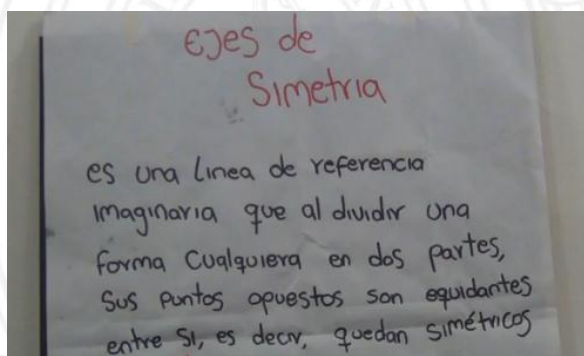 Ejes de
Simetria
es una linea de referencia
imaginaria que al dividir una
forma cualquiera en dos partes,
sus puntos opuestos son equidantes
entre si, es decir, quedan simétricos